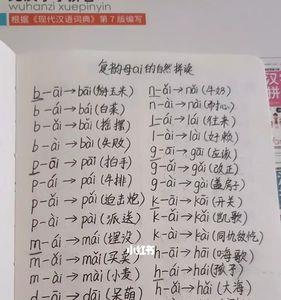 wuhanzi xuepinyin
根据《现代汉语词典》第7版编写
复韵母ai的自然拼读
b-āi→bāi(掰玉米)
b-ái→bái(白菜)
b-ǎi→bǎi(摇摆)
b-ài→bài(失败)
p-āi→pāi(拍手)
p-ái→pái(牛排)
p-ǎi→pǎi(迫击炮)
p-ài→pài(派送)
m-ái→mái(埋没)
m-ǎi→mǎi(买卖)
m-ài→mài(小麦)
d-āi→dāi(呆萌)
n-ǎi→nǎi(牛奶)
n-ài→nài(耐心)
l-ái→lái(往来)
l-ài→lài(好赖)
g-āi→gāi(应该)
g-ǎi→gǎi(改正)
g-ài→gài(盖房子)
k-āi→kāi(开关)
k-ǎi→kǎi(凯歌)
k-ài→kài(同仇敌忾)
h-āi→hāi(嗨歌)
h-ái→hái(孩子)
h-ǎi→hǎi(大海)
小红书